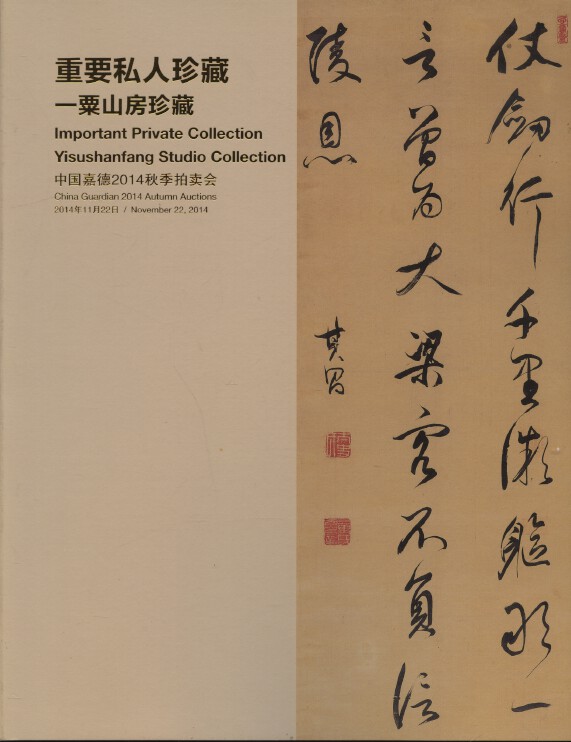 重要私人珍藏
一粟山房珍藏
Important Private Collection
Yisushanfang Studio Collection
中国嘉德2014秋季拍卖会
China Guardian 2014 Autumn Auctions
2014年11月22日 / November 22, 2014
仗劍行千里微軀敢一
言曾為大梁客不負信
陵恩
其昌